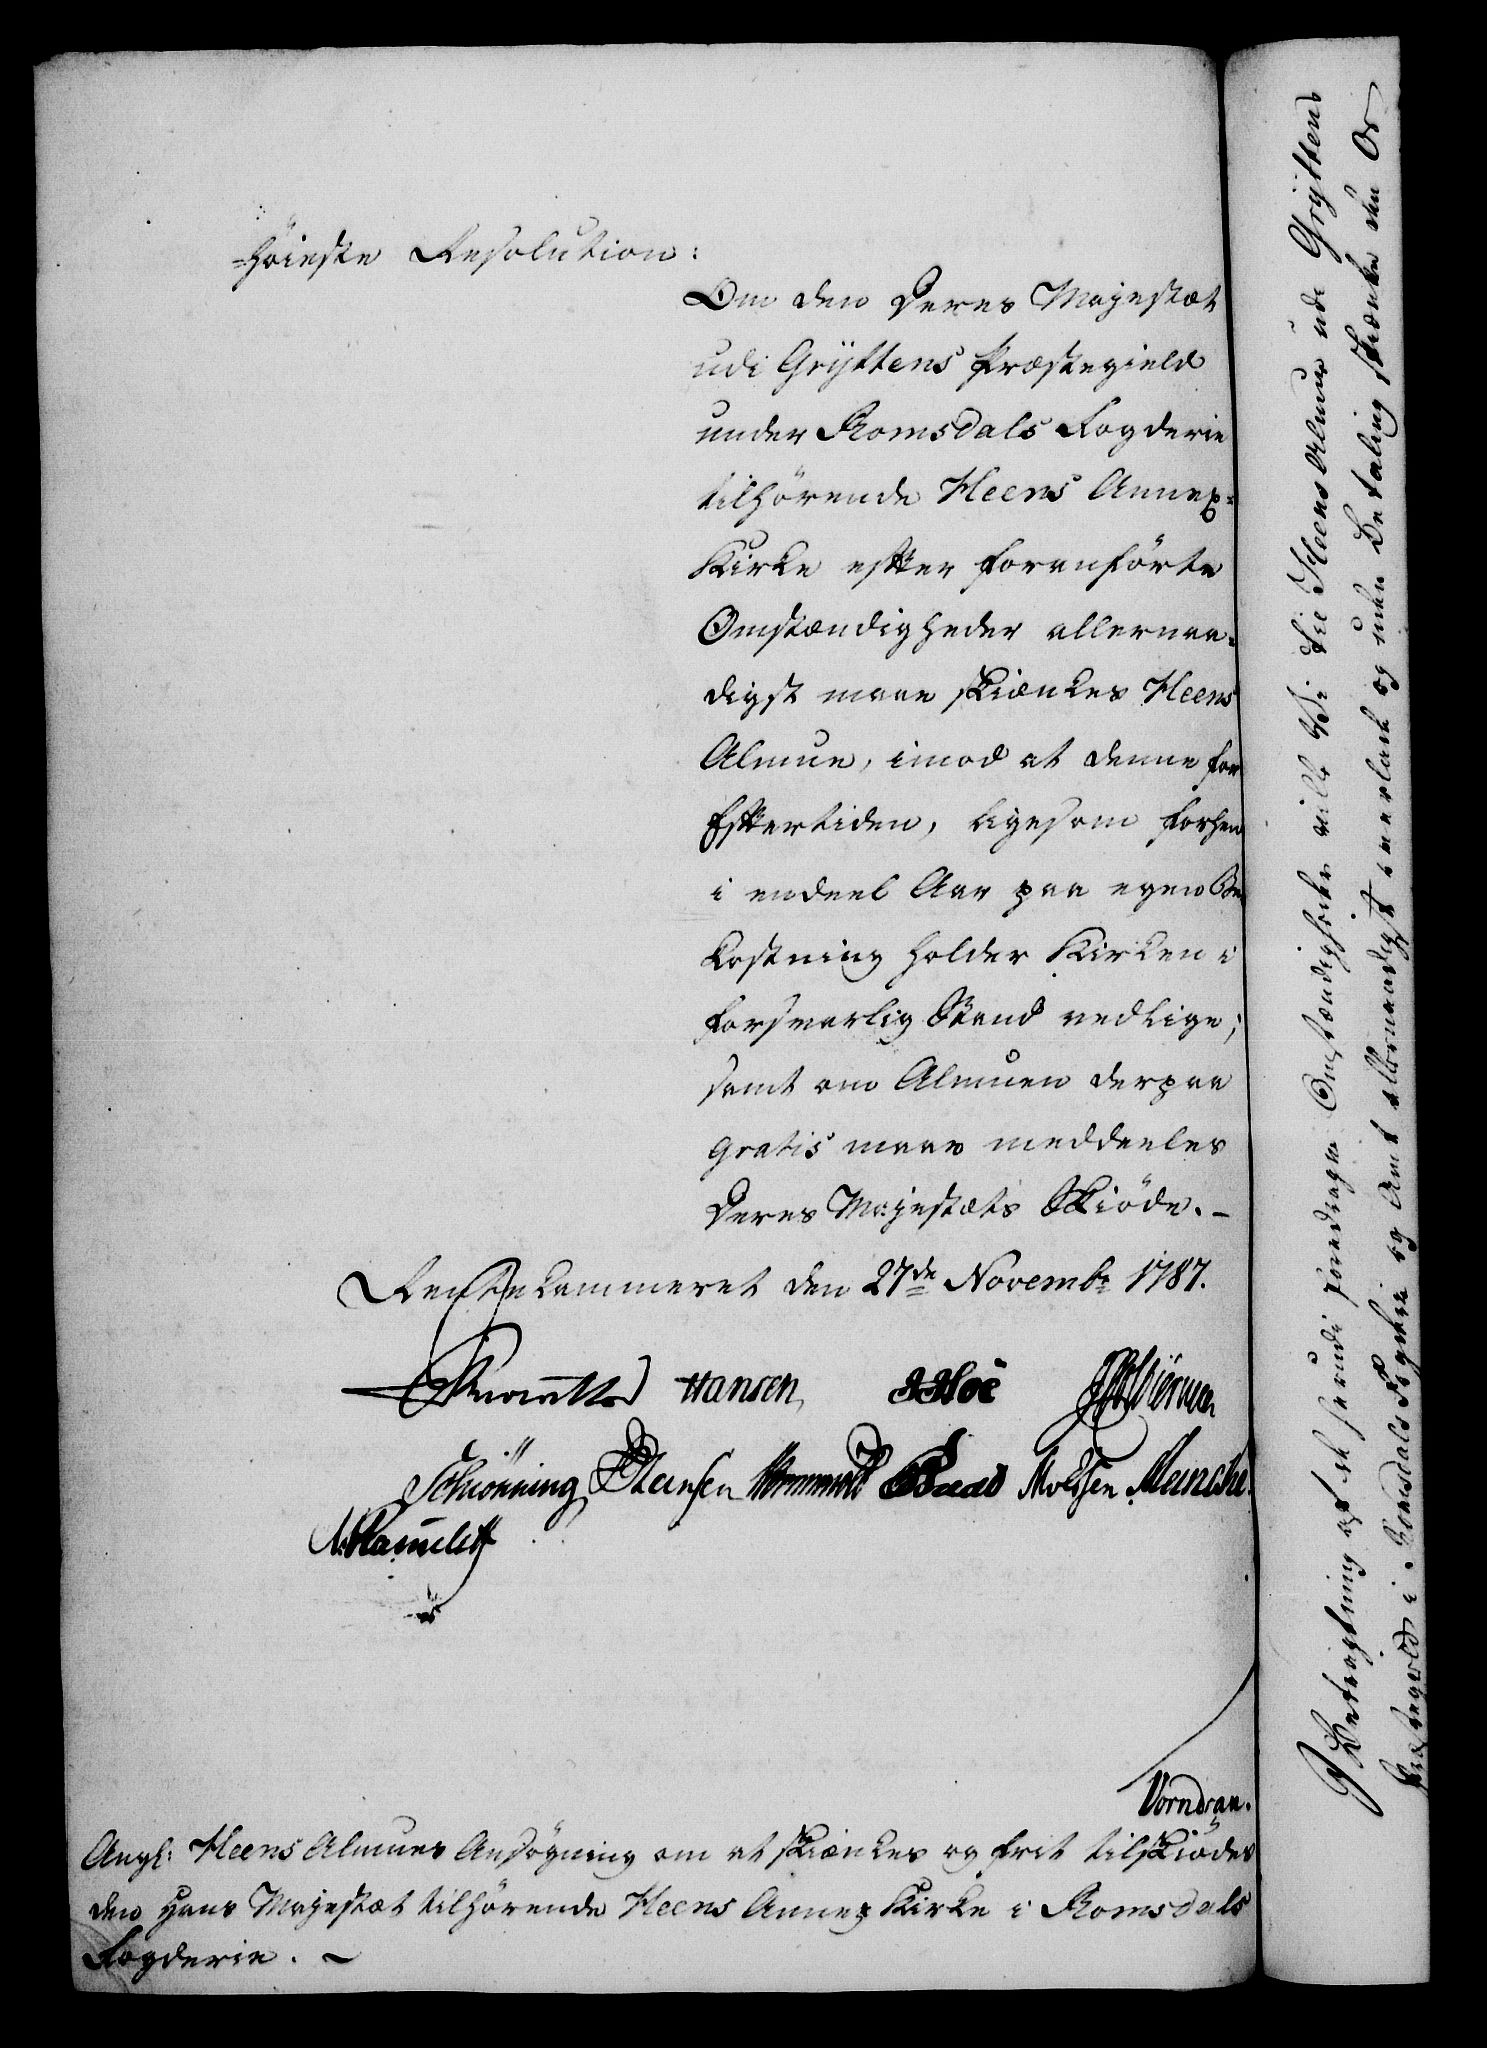 -höieste Resolution:
Om den Deres Majestæt
udi Gryttens Præstegield
under Romsdals Fogderie
tilhørende Heens Annex-
Kirke efter foranførte
Omstændigheder allernaa-
digst maae skiænkes Heens
Almue, imod at denne for
Eftertiden, ligesom forhen
i endeel Aar paa egen Be
kostning holder Kirken i
forsvarlig Stand vedlige;
samt om Almuen derpaa
gratis maae meddeeles
Deres Majestæts Skiøde. –
Rentekammeret den 27de Novembr 1787.
Hansen
Schiönning Hansen Moldsen Manthe
Vorndran.
Angl: Heens Almues Ansøgning om at skiænkes og frit tilskiødes
den Hans Majestæt tilhørende Heens Annex Kirke i Romsdals
Fogderie. –
I Betragtning af de herudi foredragne Omstændigheder ville Vi til Heens Almue udi Gryttens
Præstegield i Romsdals Fogderie og Amt allernaadigst overlade og uden Betaling skiænke den Os